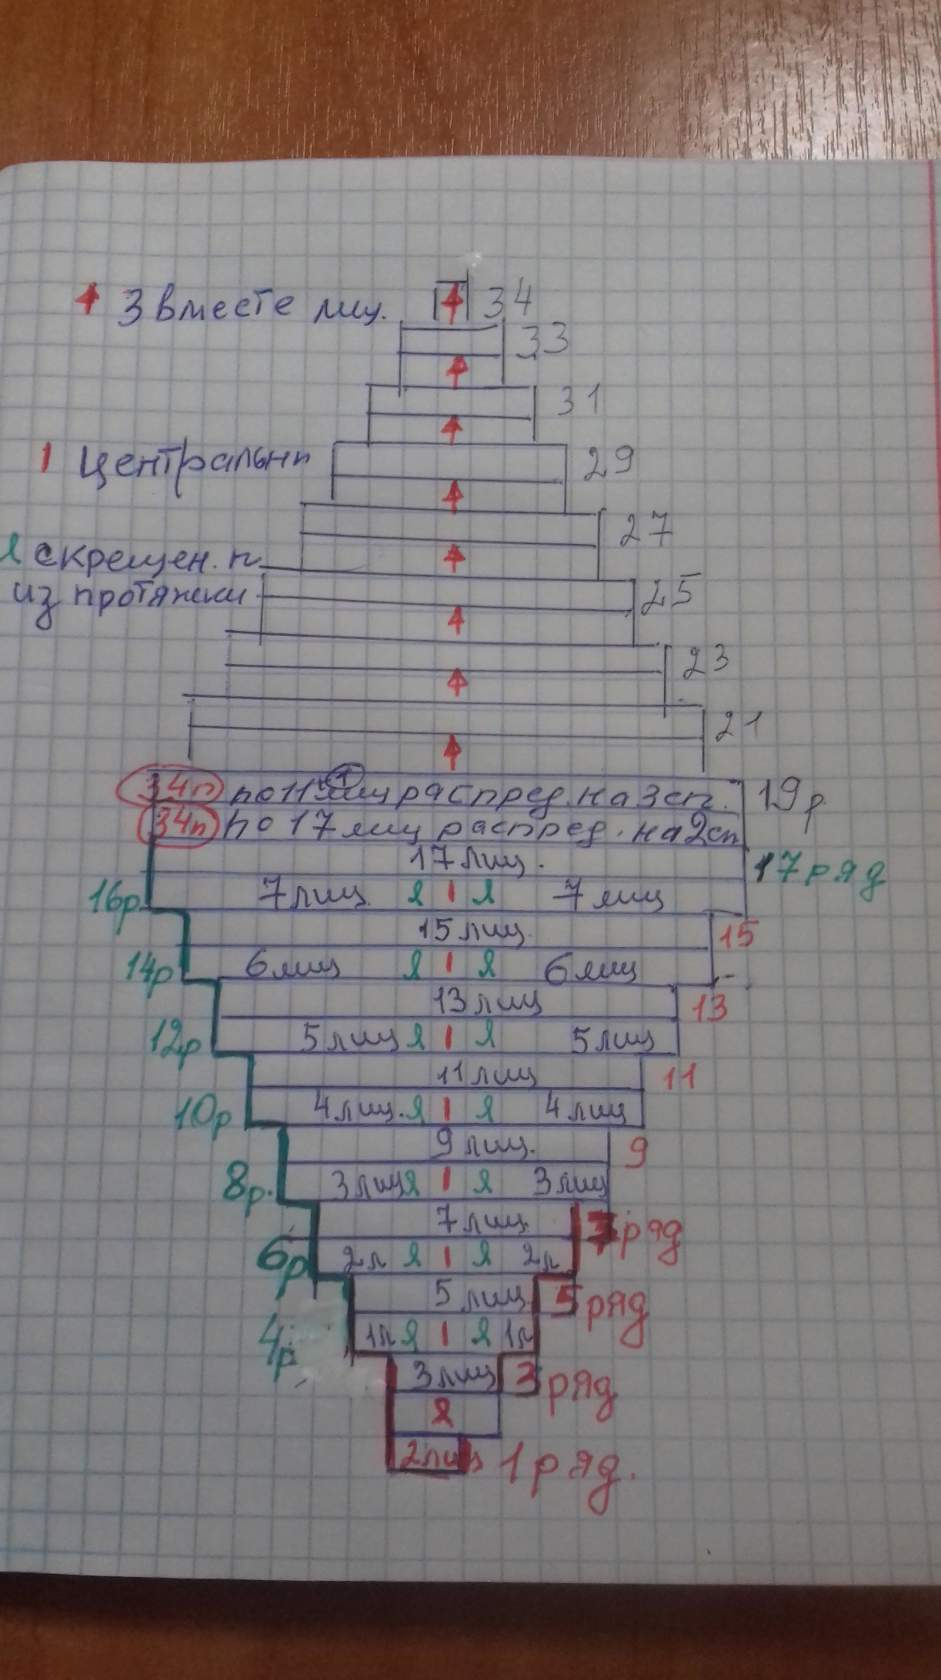 3 вместе лиц. 34
33
31
1 Центральн п 29
27
скрещен. п.
из протяжки 25
23
21
34п по 11 лиц распред. на 3сп. 19р
34п по 17 лиц распред. на 2сп
17 лиц. 17 ряд
16р 7лиц Я 1 Я 7лиц
15 лиц. 15
14р 6лиц Я 1 Я 6лиц
13 лиц 13
12р 5лиц Я 1 Я 5лиц
11лиц 11
10р 4лиц. Я 1 Я 4лиц
9 лиц. 9
8р. 3лиц Я 1 Я 3лиц
7 лиц. 7 ряд
6р 2л Я 1 Я 2л
5 лиц. 5 ряд
4р 1л Я 1 Я 1л
3лиц 3 ряд
Я
2лиц 1 ряд.